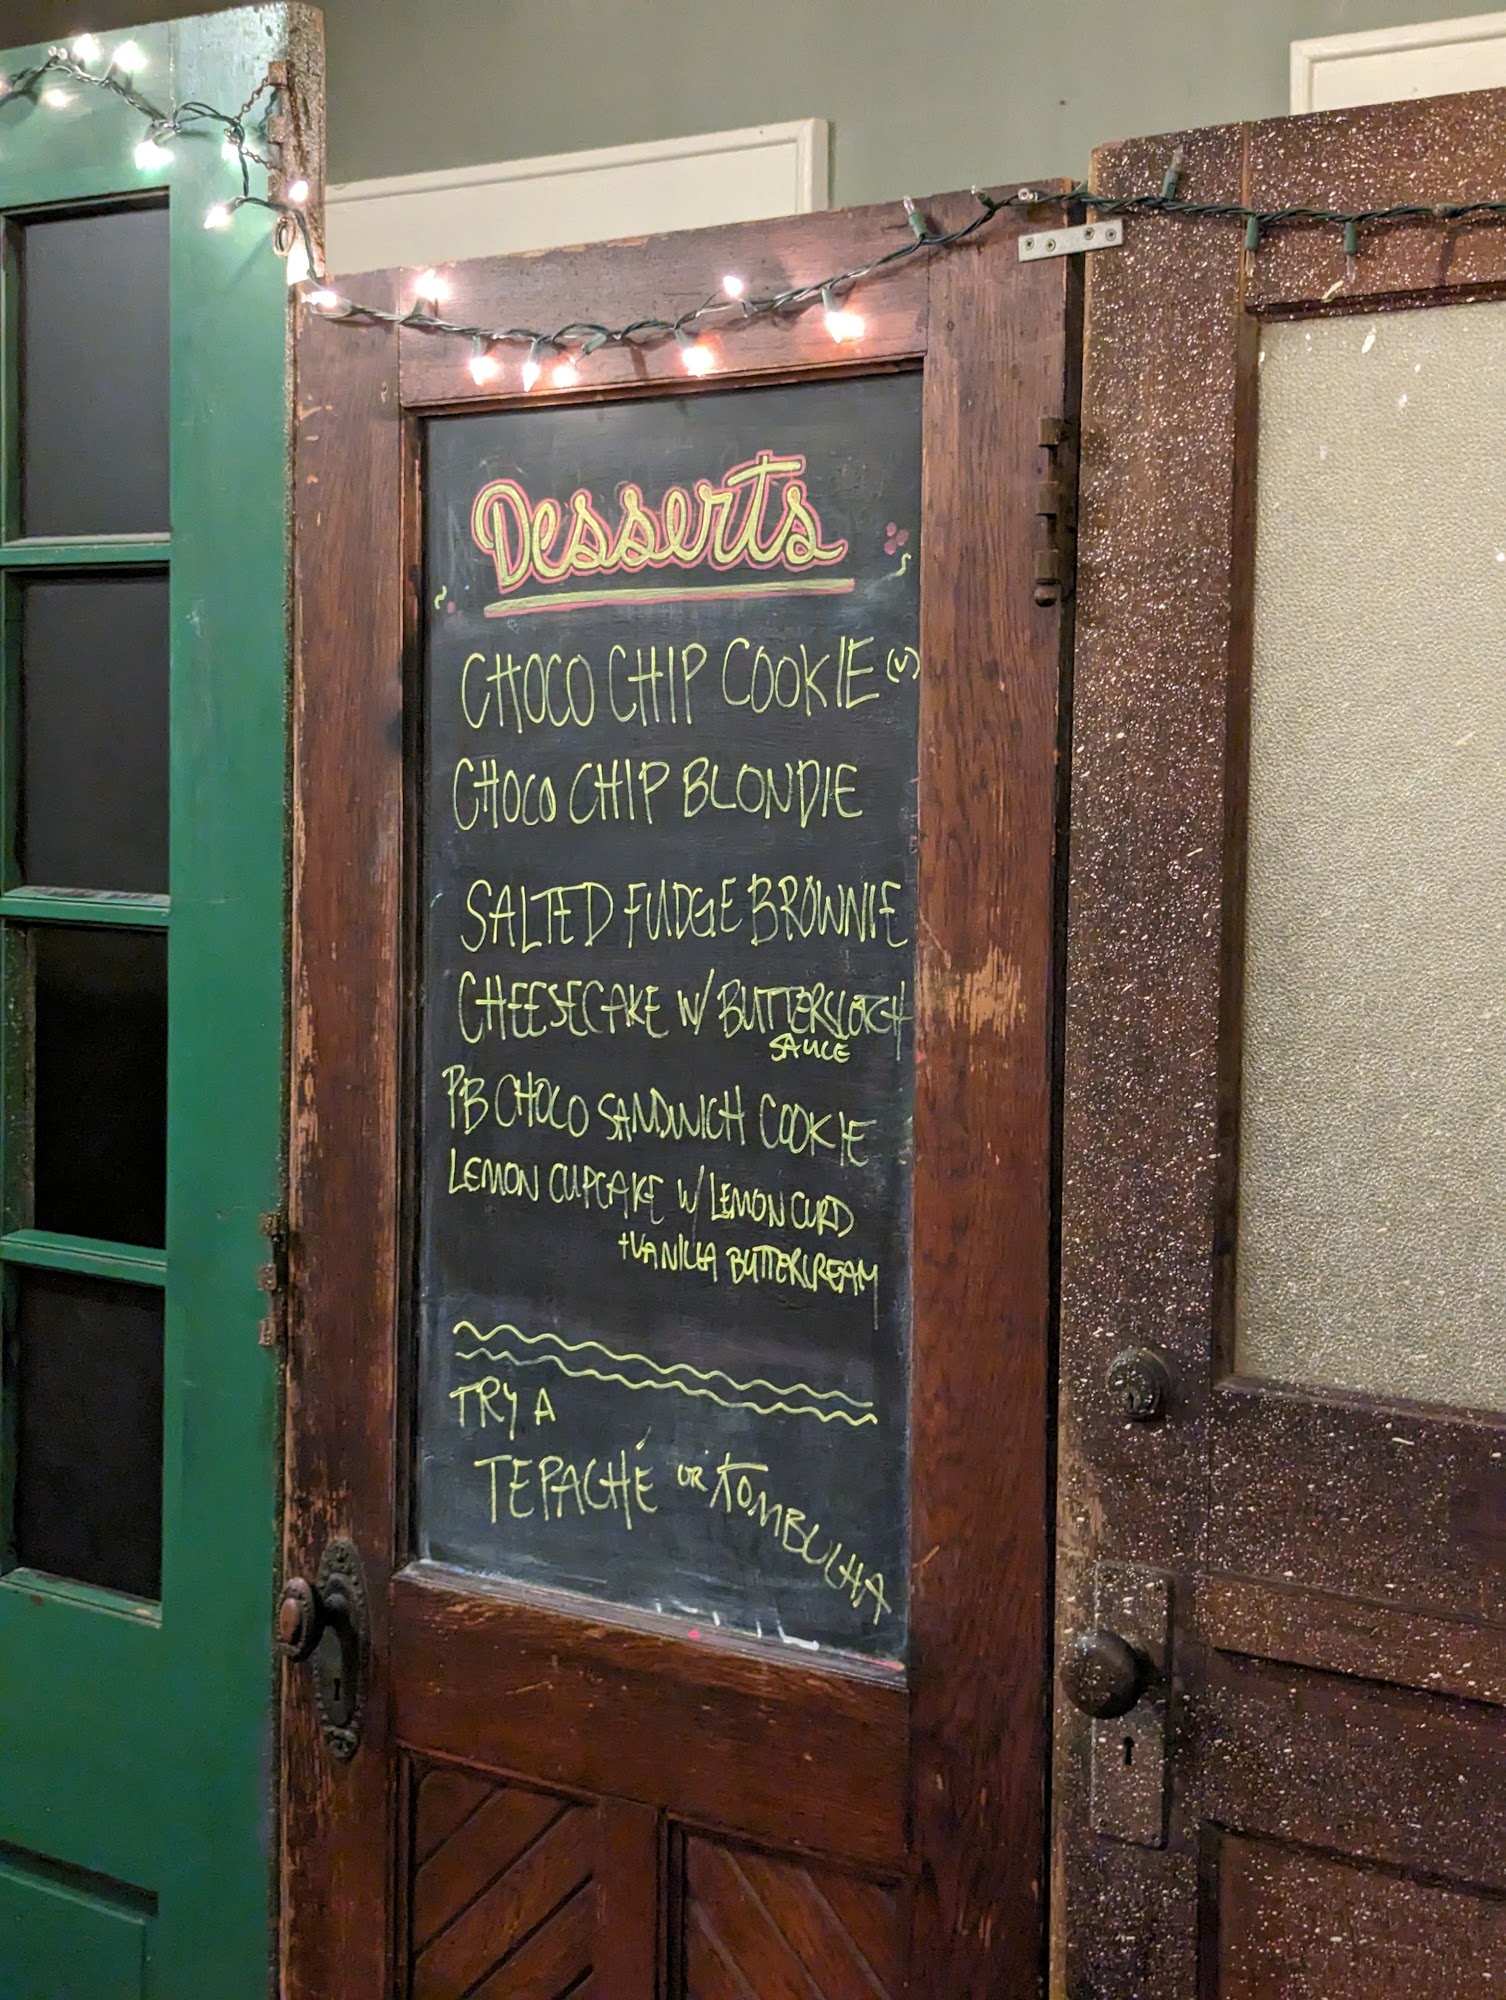 Desserts
CHOCO CHIP COOKIE (V)
CHOCO CHIP BLONDIE
SALTED FUDGE BROWNIE
CHEESECAKE W/ BUTTERSCOTCH
SAUCE
PB CHOCO SANDWICH COOKIE
LEMON CUPCAKE W/ LEMON CURD
+VANILLA BUTTERCREAM
TRY A
TEPACHÉ OR KOMBUCHA